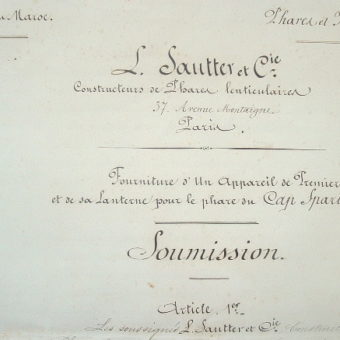 Maroc.
Phares et
L. Sautter et Cie
Constructeurs de Phares lenticulaires
37. Avenue Montaigne
Paris.
Fourniture d'Un Appareil de Premier
et de sa Lanterne pour le phare du Cap Spart
Soumission.
Article 1er
Les soussignés L. Sautter et Cie Construct